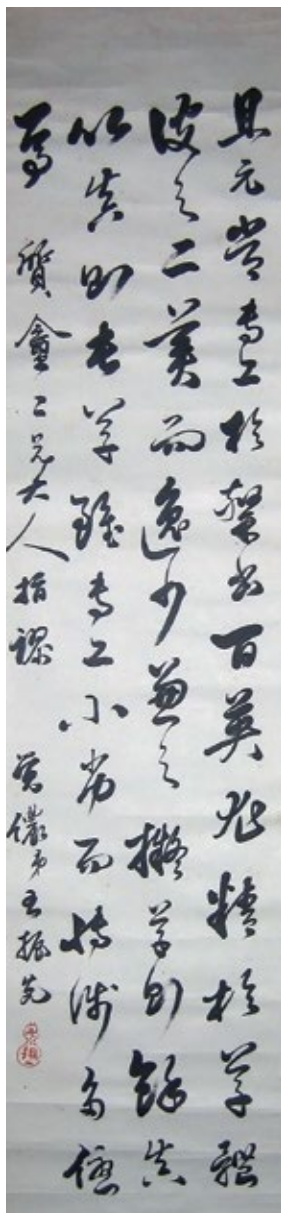 且元常專工於隸書百英尤精於草體
彼之二美而逸少兼之擬草則餘真
比真則長草雖專工小劣而博涉多優
質盦二兄大人指謬 弟王振